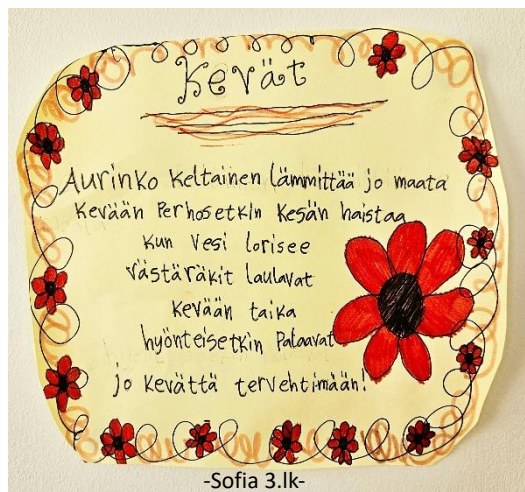 Kevät
Aurinko keltainen lämmittää jo maata
kevään Perhosetkin kesän haistaa
kun vesi lorisee
västäräkit laulavat
kevään taika
hyönteisetkin Palaavat
jo kevättä tervehtimään!
-Sofia 3.lk-